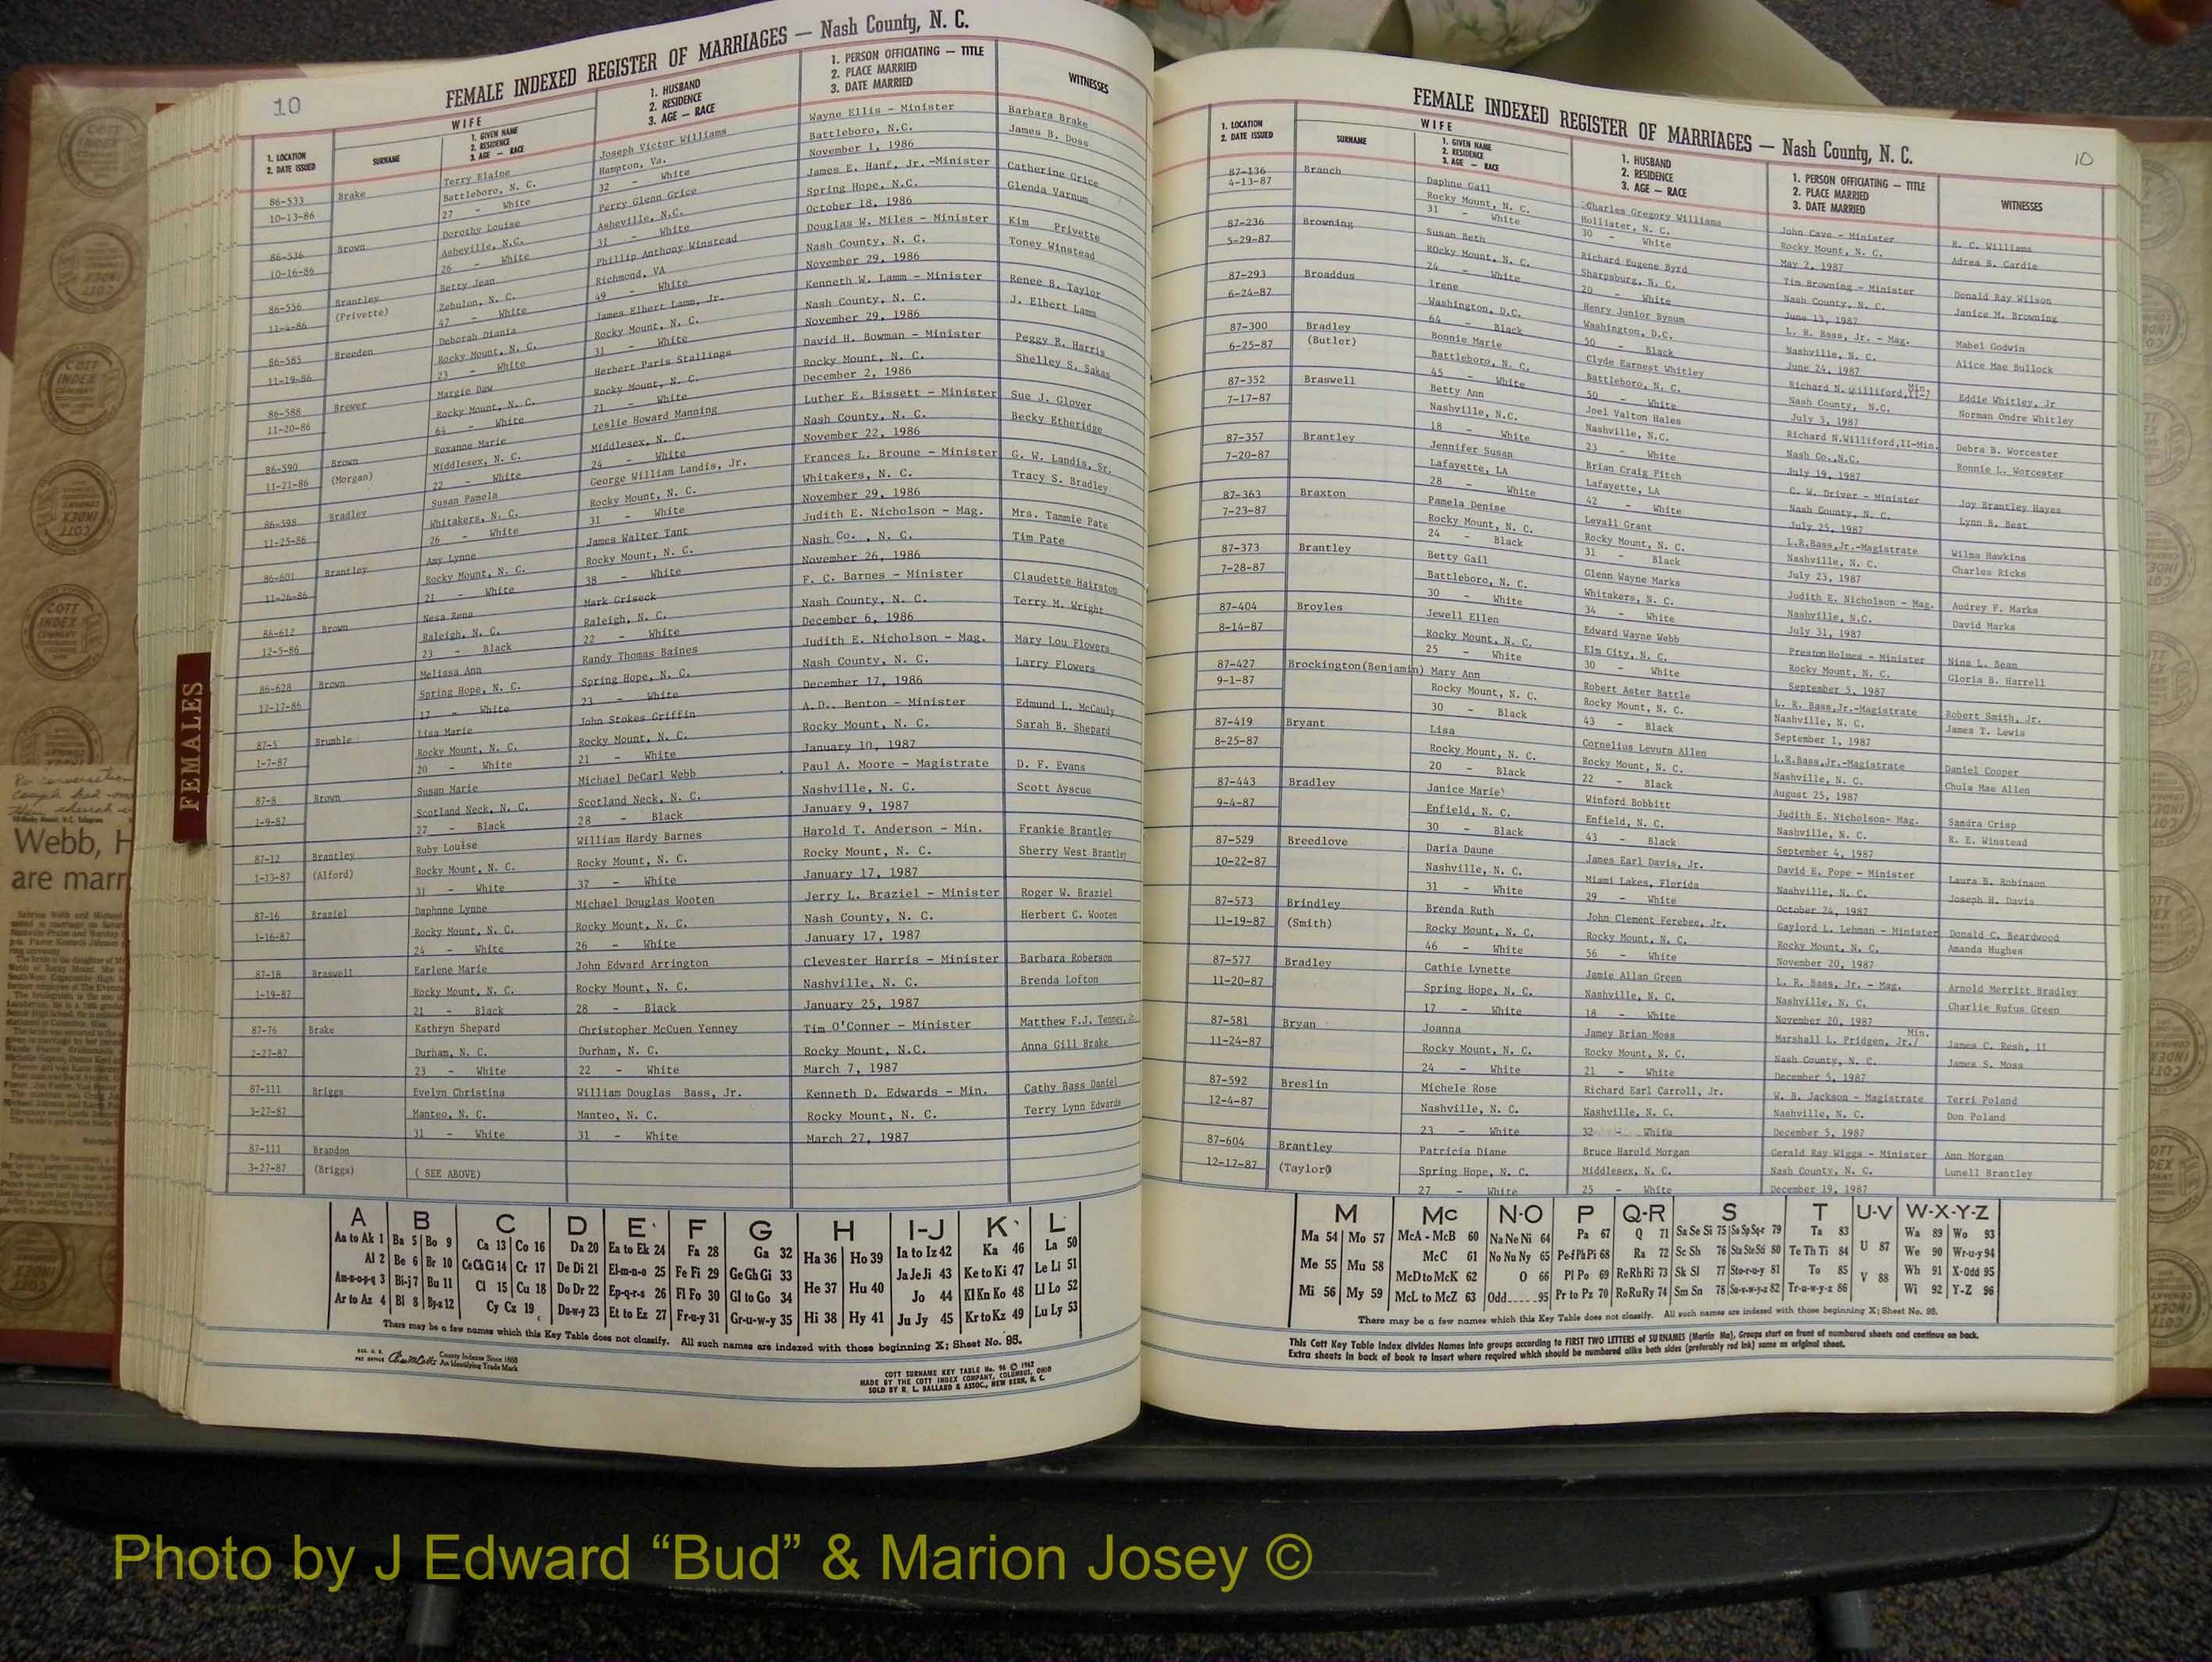 10
FEMALE INDEXED REGISTER OF MARRIAGES — Nash County, N. C.
1. LOCATION
2. DATE ISSUED
SURNAME
WIFE
1. GIVEN NAME
2. RESIDENCE
3. AGE — RACE
1. HUSBAND
2. RESIDENCE
3. AGE — RACE
1. PERSON OFFICIATING — TITLE
2. PLACE MARRIED
3. DATE MARRIED
WITNESSES
86-533 Brake Terry Elaine Joseph Victor Williams Wayne Ellis - Minister Barbara Brake
10-13-86 Battleboro, N. C. Hampton, Va. Battleboro, N.C. James B. Doss
27 - White 32 - White November 1, 1986
86-536 Brown Dorothy Louise Perry Glenn Grice James E. Hanf, Jr. -Minister Catherine Grice
10-16-86 Asheville, N.C. Asheville, N.C. Spring Hope, N.C. Glenda Varnum
26 - White 31 - White October 18, 1986
86-556 Brantley Betty Jean Phillip Anthony Winstead Douglas W. Miles - Minister Kim Privette
11-4-86 (Privette) Zebulon, N. C. Richmond, VA Nash County, N. C. Toney Winstead
47 - White 49 - White November 29, 1986
86-585 Breeden Deborah Diania James Elbert Lamm, Jr. Kenneth W. Lamm - Minister Renee B. Taylor
11-19-86 Rocky Mount, N. C. Rocky Mount, N. C. Nash County, N. C. J. Elbert Lamm
23 - White 31 - White November 29, 1986
86-588 Brewer Margie Daw Herbert Paris Stallings David H. Bowman - Minister Peggy R. Harris
11-20-86 Rocky Mount, N. C. Rocky Mount, N. C. Rocky Mount, N. C. Shelley S. Sakas
64 - White 71 - White December 2, 1986
86-590 Brown Roxanne Marie Leslie Howard Manning Luther E. Bissett - Minister Sue J. Glover
11-21-86 (Morgan) Middlesex, N. C. Middlesex, N. C. Nash County, N. C. Becky Etheridge
22 - White 24 - White November 22, 1986
86-598 Bradley Susan Pamela George William Landis, Jr. Frances L. Broune - Minister G. W. Landis, Sr.
11-25-86 Whitakers, N. C. Rocky Mount, N. C. Whitakers, N. C. Tracy S. Bradley
26 - White 31 - White November 29, 1986
86-601 Brantley Amy Lynne James Walter Tant Judith E. Nicholson - Mag. Mrs. Tammie Pate
11-26-86 Rocky Mount, N. C. Rocky Mount, N. C. Nash Co. , N. C. Tim Pate
21 - White 38 - White November 26, 1986
86-612 Brown Nesa Rena Mark Criseck F. C. Barnes - Minister Claudette Hairston
12-5-86 Raleigh, N. C. Raleigh, N. C. Nash County, N. C. Terry M. Wright
23 - Black 22 - White December 6, 1986
86-628 Brown Melissa Ann Randy Thomas Baines Judith E. Nicholson - Mag. Mary Lou Flowers
12-17-86 Spring Hope, N. C. Spring Hope, N. C. Nash County, N. C. Larry Flowers
17 - White 23 - White December 17, 1986
87-5 Brumble Lisa Marie John Stokes Griffin A.D.. Benton - Minister Edmund L. McCauly
1-7-87 Rocky Mount, N. C. Rocky Mount, N. C. Rocky Mount, N. C. Sarah B. Shepard
20 - White 21 - White January 10, 1987
87-8 Brown Susan Marie Michael DeCarl Webb Paul A. Moore - Magistrate D. F. Evans
1-9-87 Scotland Neck, N. C. Scotland Neck, N. C. Nashville, N. C. Scott Ayscue
27 - Black 28 - Black January 9, 1987
87-12 Brantley Ruby Louise William Hardy Barnes Harold T. Anderson - Min. Frankie Brantley
1-13-87 (Alford) Rocky Mount, N. C. Rocky Mount, N. C. Rocky Mount, N. C. Sherry West Brantley
31 - White 37 - White January 17, 1987
87-16 Braziel Daphnne Lynne Michael Douglas Wooten Jerry L. Braziel - Minister Roger W. Braziel
1-16-87 Rocky Mount, N. C. Rocky Mount, N. C. Nash County, N. C. Herbert C. Wooten
24 - White 26 - White January 17, 1987
87-18 Braswell Earlene Marie John Edward Arrington Clevester Harris - Minister Barbara Roberson
1-19-87 Rocky Mount, N. C. Rocky Mount, N. C. Nashville, N. C. Brenda Lofton
21 - Black 28 - Black January 25, 1987
87-76 Brake Kathryn Shepard Christopher McCuen Yenney Tim O'Conner - Minister Matthew F.J. Yenney, Jr.
2-27-87 Durham, N. C. Durham, N. C. Rocky Mount, N.C. Anna Gill Brake
23 - White 22 - White March 7, 1987
87-111 Briggs Evelyn Christina William Douglas Bass, Jr. Kenneth D. Edwards - Min. Cathy Bass Daniel
3-27-87 Manteo, N. C. Manteo, N. C. Rocky Mount, N. C. Terry Lynn Edwards
31 - White 31 - White March 27, 1987
87-111 Brandon
3-27-87 (Briggs) ( SEE ABOVE)
A B C D E F G H I-J K L
Aa to Ak 1 Ba 5 Bo 9 Ca 13 Co 16 Da 20 Ea to Ek 24 Fa 28 Ga 32 Ha 36 Ho 39 Ia to Iz 42 Ka 46 La 50
Al 2 Be 6 Br 10 Ce Ch Ci 14 Cr 17 De Di 21 El-m-n-o 25 Fe Fi 29 Ge Gh Gi 33 He 37 Hu 40 Ja Je Ji 43 Ke to Ki 47 Le Li 51
An-n-o-p-q 3 Bi-j 7 Bu 11 Cl 15 Cu 18 Do Dr 22 Ep-q-r-s 26 Fl Fo 30 Gl to Go 34 Jo 44 Kl Kn Ko 48 Ll Lo 52
Ar to Az 4 Bl 8 By-z 12 Cy Cz 19 Du-w-y 23 Et to Ez 27 Fr-u-y 31 Gr-u-w-y 35 Hi 38 Hy 41 Ju Jy 45 Kr to Kz 49 Lu Ly 53
There may be a few names which this Key Table does not classify. All such names are indexed with those beginning X; Sheet No. 95.
County Indexes Since 1888
An Identifying Trade Mark
COTT SURNAME KEY TABLE No. 96 © 1962
MADE BY THE COTT INDEX COMPANY, COLUMBUS, OHIO
SOLD BY R. L. BALLARD & ASSOC., NEW BERN, N. C.
FEMALES
Webb, H
are marr
FEMALE INDEXED REGISTER OF MARRIAGES — Nash County, N. C.
10
1. LOCATION
2. DATE ISSUED
SURNAME
WIFE
1. GIVEN NAME
2. RESIDENCE
3. AGE — RACE
1. HUSBAND
2. RESIDENCE
3. AGE — RACE
1. PERSON OFFICIATING — TITLE
2. PLACE MARRIED
3. DATE MARRIED
WITNESSES
87-136 Branch Daphne Gail Charles Gregory Williams John Cave - Minister R. C. Williams
4-13-87 Rocky Mount, N. C. Hollister, N. C. Rocky Mount, N. C. Adrea B. Cardie
31 - White 30 - White May 2, 1987
87-236 Browning Susan Beth Richard Eugene Byrd Tim Browning - Minister Donald Ray Wilson
5-29-87 ROcky Mount, N. C. Sharpsburg, N. C. Nash County, N. C. Janice M. Browning
24 - White 20 - White June 13, 1987
87-293 Broaddus Irene Henry Junior Bynum L. R. Bass, Jr. - Mag. Mabel Godwin
6-24-87 Washington, D.C. Washington, D.C. Nashville, N. C. Alice Mae Bullock
64 - Black 50 - Black June 24, 1987
87-300 Bradley Bonnie Marie Clyde Earnest Whitley Richard N. Williford,II-Min. Eddie Whitley, Jr
6-25-87 (Butler) Battleboro, N. C. Battleboro, N. C. Nash County, N.C. Norman Ondre Whitley
45 - White 50 - White July 3, 1987
87-352 Braswell Betty Ann Joel Valton Hales Richard N.Williford,II-Min. Debra B. Worcester
7-17-87 Nashville, N.C. Nashville, N.C. Nash Co.,N.C. Ronnie L. Worcester
18 - White 23 - White July 19, 1987
87-357 Brantley Jennifer Susan Brian Craig Fitch C. W. Driver - Minister Joy Brantley Hayes
7-20-87 Lafayette, LA Lafayette, LA Nash County, N. C. Lynn B. Best
28 - White 42 - White July 25, 1987
87-363 Braxton Pamela Denise Levall Grant L.R.Bass,Jr.-Magistrate Wilma Hawkins
7-23-87 Rocky Mount, N. C. Rocky Mount, N. C. Nashville, N. C. Charles Ricks
24 - Black 31 - Black July 23, 1987
87-373 Brantley Betty Gail Glenn Wayne Marks Judith E. Nicholson - Mag. Audrey F. Marks
7-28-87 Battleboro, N. C. Whitakers, N. C. Nashville, N.C. David Marks
30 - White 34 - White July 31, 1987
87-404 Broyles Jewell Ellen Edward Wayne Webb Preston Holmes - Minister Nina L. Beam
8-14-87 Rocky Mount, N. C. Elm City, N. C. Rocky Mount, N. C. Gloria B. Harrell
25 - White 30 - White September 5, 1987
87-427 Brockington(Benjamin) Mary Ann Robert Aster Battle L. R. Bass,Jr.-Magistrate Robert Smith, Jr.
9-1-87 Rocky Mount, N. C. Rocky Mount, N. C. Nashville, N. C. James T. Lewis
30 - Black 43 - Black September 1, 1987
87-419 Bryant Lisa Cornelius Levurn Allen L.R.Bass,Jr.-Magistrate Daniel Cooper
8-25-87 Rocky Mount, N. C. Rocky Mount, N. C. Nashville, N. C. Chula Mae Allen
20 - Black 22 - Black August 25, 1987
87-443 Bradley Janice Marie Winford Bobbitt Judith E. Nicholson- Mag. Sandra Crisp
9-4-87 Enfield, N. C. Enfield, N. C. Nashville, N. C. R. E. Winstead
30 - Black 43 - Black September 4, 1987
87-529 Breedlove Daria Daune James Earl Davis, Jr. David E. Pope - Minister Laura B. Robinson
10-22-87 Nashville, N. C. Miami Lakes, Florida Nashville, N. C. Joseph H. Davis
31 - White 29 - White October 24, 1987
87-573 Brindley Brenda Ruth John Clement Ferebee, Jr. Gaylord L. Lehman - Minister Donald C. Beardwood
11-19-87 (Smith) Rocky Mount, N. C. Rocky Mount, N. C. Rocky Mount, N. C. Amanda Hughes
46 - White 56 - White November 20, 1987
87-577 Bradley Cathie Lynette Jamie Allan Green L. R. Bass, Jr. - Mag. Arnold Merritt Bradley
11-20-87 Spring Hope, N. C. Nashville, N. C. Nashville, N. C. Charlie Rufus Green
17 - White 18 - White November 20, 1987
87-581 Bryan Joanna Jamey Brian Moss Marshall L. Pridgen, Jr./ Min. James C. Resh, II
11-24-87 Rocky Mount, N. C. Rocky Mount, N. C. Nash County, N. C. James S. Moss
24 - White 21 - White December 5, 1987
87-592 Breslin Michele Rose Richard Earl Carroll, Jr. W. B. Jackson - Magistrate Terri Poland
12-4-87 Nashville, N. C. Nashville, N. C. Nashville, N. C. Don Poland
23 - White 32 - White December 5, 1987
87-604 Brantley Patricia Diane Bruce Harold Morgan Gerald Ray Wiggs - Minister Ann Morgan
12-17-87 (Taylor) Spring Hope, N. C. Middlesex, N. C. Nash County, N. C. Lunell Brantley
27 - White 25 - White December 19, 1987
M Mc N-O P Q-R S T U-V W-X-Y-Z
Ma 54 Mo 57 McA - McB 60 Na Ne Ni 64 Pa 67 Q 71 Sa Se Si 75 So Sp Sq-r 79 Ta 83 U 87 Wa 89 Wo 93
Me 55 Mu 58 McC 61 No Nu Ny 65 Pe-f Ph Pi 68 Ra 72 Sc Sh 76 Sta Ste Sti 80 Te Th Ti 84 We 90 Wr-u-y 94
McD to McK 62 O 66 Pl Po 69 Re Rh Ri 73 Sk Sl 77 Sto-r-u-y 81 To 85 V 88 Wh 91 X-Odd 95
Mi 56 My 59 McL to McZ 63 Odd 95 Pr to Pz 70 Ro Ru Ry 74 Sm Sn 78 Su-v-w-y-z 82 Tr-u-w-y-z 86 Wi 92 Y-Z 96
There may be a few names which this Key Table does not classify. All such names are indexed with those beginning X; Sheet No. 95.
This Cott Key Table Index divides Names into groups according to FIRST TWO LETTERS of SURNAMES (Martin Ma), Groups start on front of numbered sheets and continue on back.
Extra sheets in back of book to insert where required which should be numbered alike both sides (preferably red ink) same as original sheet.
Photo by J Edward “Bud” & Marion Josey ©